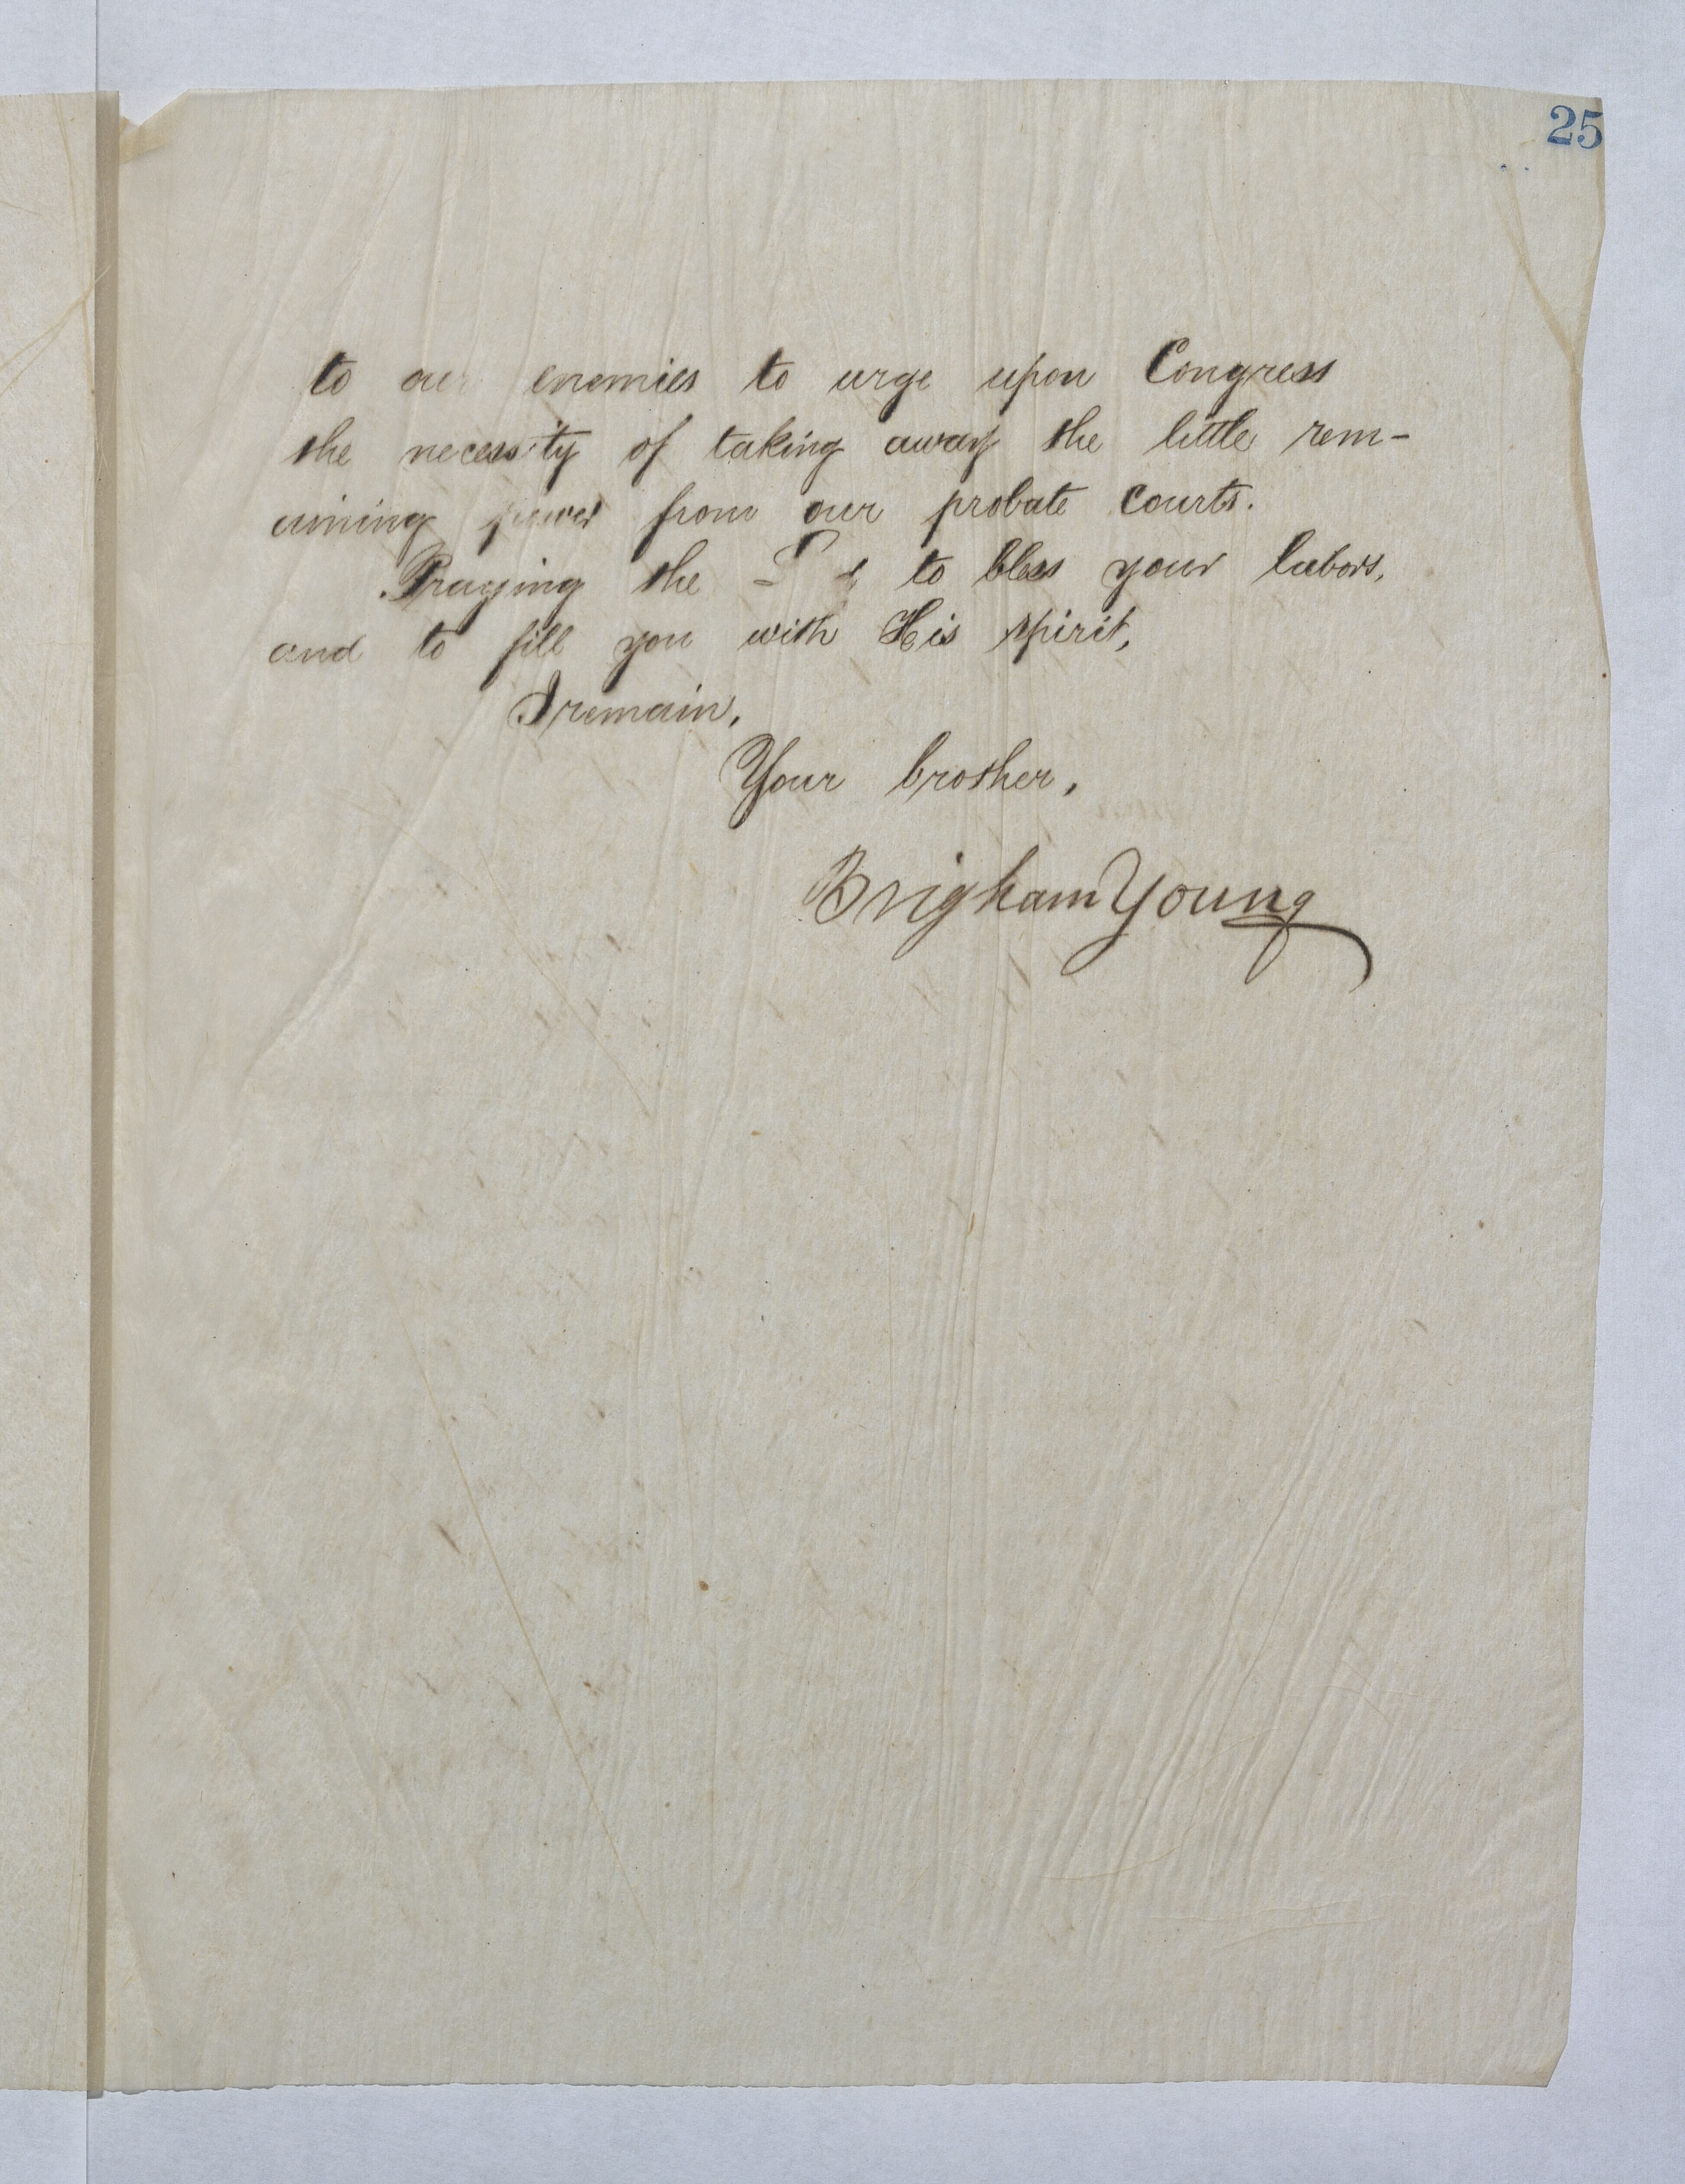 25
to our enemies to urge upon Congress
the necessity of taking away the little rem-
aining power from our probate courts.
Praying the to bless your labors,
and to fill you with His spirit,
I remain,
Your brother,
Brigham Young